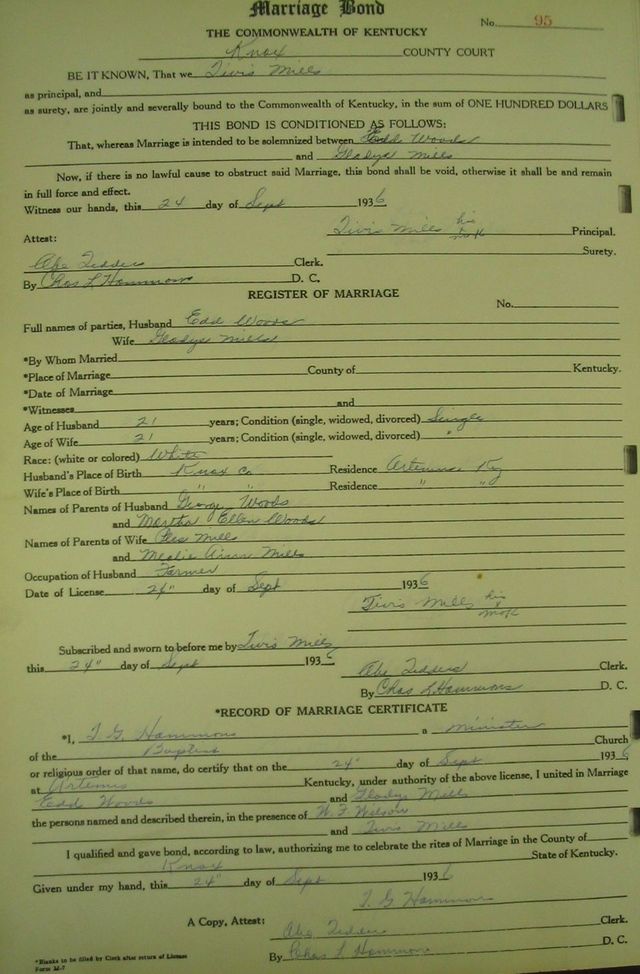 Marriage Bond
No. 95
THE COMMONWEALTH OF KENTUCKY
Knox COUNTY COURT
BE IT KNOWN, That we Tivis Mills
as principal, and
as surety, are jointly and severally bound to the Commonwealth of Kentucky, in the sum of ONE HUNDRED DOLLARS
THIS BOND IS CONDITIONED AS FOLLOWS:
That, whereas Marriage is intended to be solemnized between Edd Woods
and Gladys Mills
Now, if there is no lawful cause to obstruct said Marriage, this bond shall be void, otherwise it shall be and remain
in full force and effect.
Witness our hands, this 24 day of Sept 1936
Tivis Mills his mark Principal.
Attest:
Surety.
Abe Tedders Clerk.
By Chas L Hammons D. C.
REGISTER OF MARRIAGE
No.
Full names of parties, Husband Edd Woods
Wife Gladys Mills
*By Whom Married
*Place of Marriage County of Kentucky.
*Date of Marriage
*Witnesses and
Age of Husband 21 years; Condition (single, widowed, divorced) Single
Age of Wife 21 years; Condition (single, widowed, divorced) "
Race: (white or colored) White
Husband's Place of Birth Knox Co Residence Artemus Ky
Wife's Place of Birth " " Residence " "
Names of Parents of Husband George Woods
and Martha Ellen Woods
Names of Parents of Wife Mills
and Mills
Occupation of Husband Farmer
Date of License 24" day of Sept 1936
Tivis Mills his mark
Subscribed and sworn to before me by Tivis Mills
this 24" day of Sept 1936
Abe Tedders Clerk.
By Chas L Hammons D. C.
*RECORD OF MARRIAGE CERTIFICATE
*I, T. G. Hammons a minister
of the Baptist Church
or religious order of that name, do certify that on the 24" day of Sept 1936
at Artemus Kentucky, under authority of the above license, I united in Marriage
Edd Woods and Gladys Mills
the persons named and described therein, in the presence of W. F. Wilson
and Tivis Mills
I qualified and gave bond, according to law, authorizing me to celebrate the rites of Marriage in the County of
Knox State of Kentucky.
Given under my hand, this 24" day of Sept 1936
T. G Hammons
A Copy, Attest: Abe Tedders Clerk.
By Chas L Hammons D. C.
*Blanks to be filled by Clerk after return of License
Form M-7